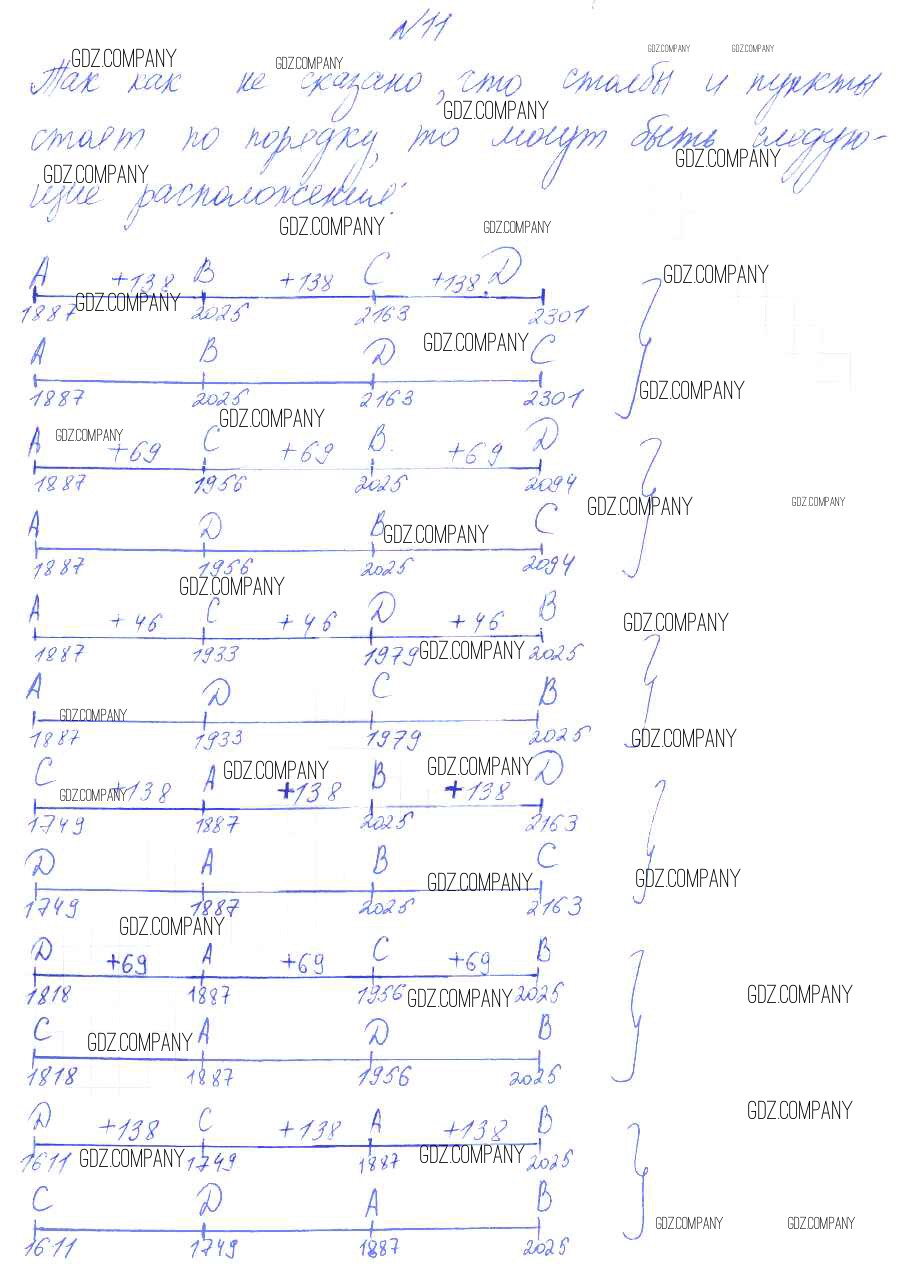 №11
GDZ.COMPANY GDZ.COMPANY GDZ.COMPANY GDZ.COMPANY
Так как не сказано, что столбы и пункты
GDZ.COMPANY
стоят по порядку, то могут быть следую-
GDZ.COMPANY GDZ.COMPANY
щие расположения:
GDZ.COMPANY GDZ.COMPANY
A +138 B +138 C +138 D GDZ.COMPANY
GDZ.COMPANY
1887 2025 2163 2301
GDZ.COMPANY
A B D C
1887 2025 2163 2301 GDZ.COMPANY
GDZ.COMPANY
A GDZ.COMPANY +69 C +69 B +69 D
1887 1956 2025 2094
GDZ.COMPANY GDZ.COMPANY
A D B GDZ.COMPANY C
1887 1956 2025 2094
GDZ.COMPANY
A +46 C +46 D +46 B GDZ.COMPANY
1887 1933 1979 GDZ.COMPANY 2025
A D C B
GDZ.COMPANY
1887 1933 1979 2025 GDZ.COMPANY
C A GDZ.COMPANY B GDZ.COMPANY D
GDZ.COMPANY +138 +138 +138
1749 1887 2025 2163
D A B C
GDZ.COMPANY GDZ.COMPANY
1749 1887 2025 2163
GDZ.COMPANY
D +69 A +69 C +69 B
1818 1887 1956 GDZ.COMPANY 2025 GDZ.COMPANY
C GDZ.COMPANY A D B
1818 1887 1956 2025
GDZ.COMPANY
D +138 C +138 A +138 B
1611 GDZ.COMPANY 1749 1887 GDZ.COMPANY 2025
C D A B
GDZ.COMPANY GDZ.COMPANY
1611 1749 1887 2025